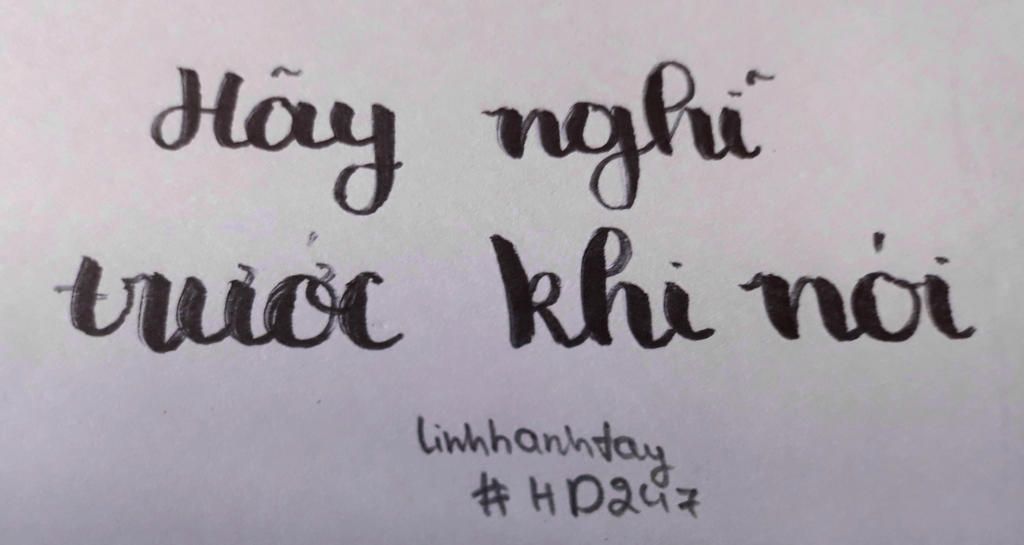 Hãy nghĩ
trước khi nói
linhhanhtay
#HD247